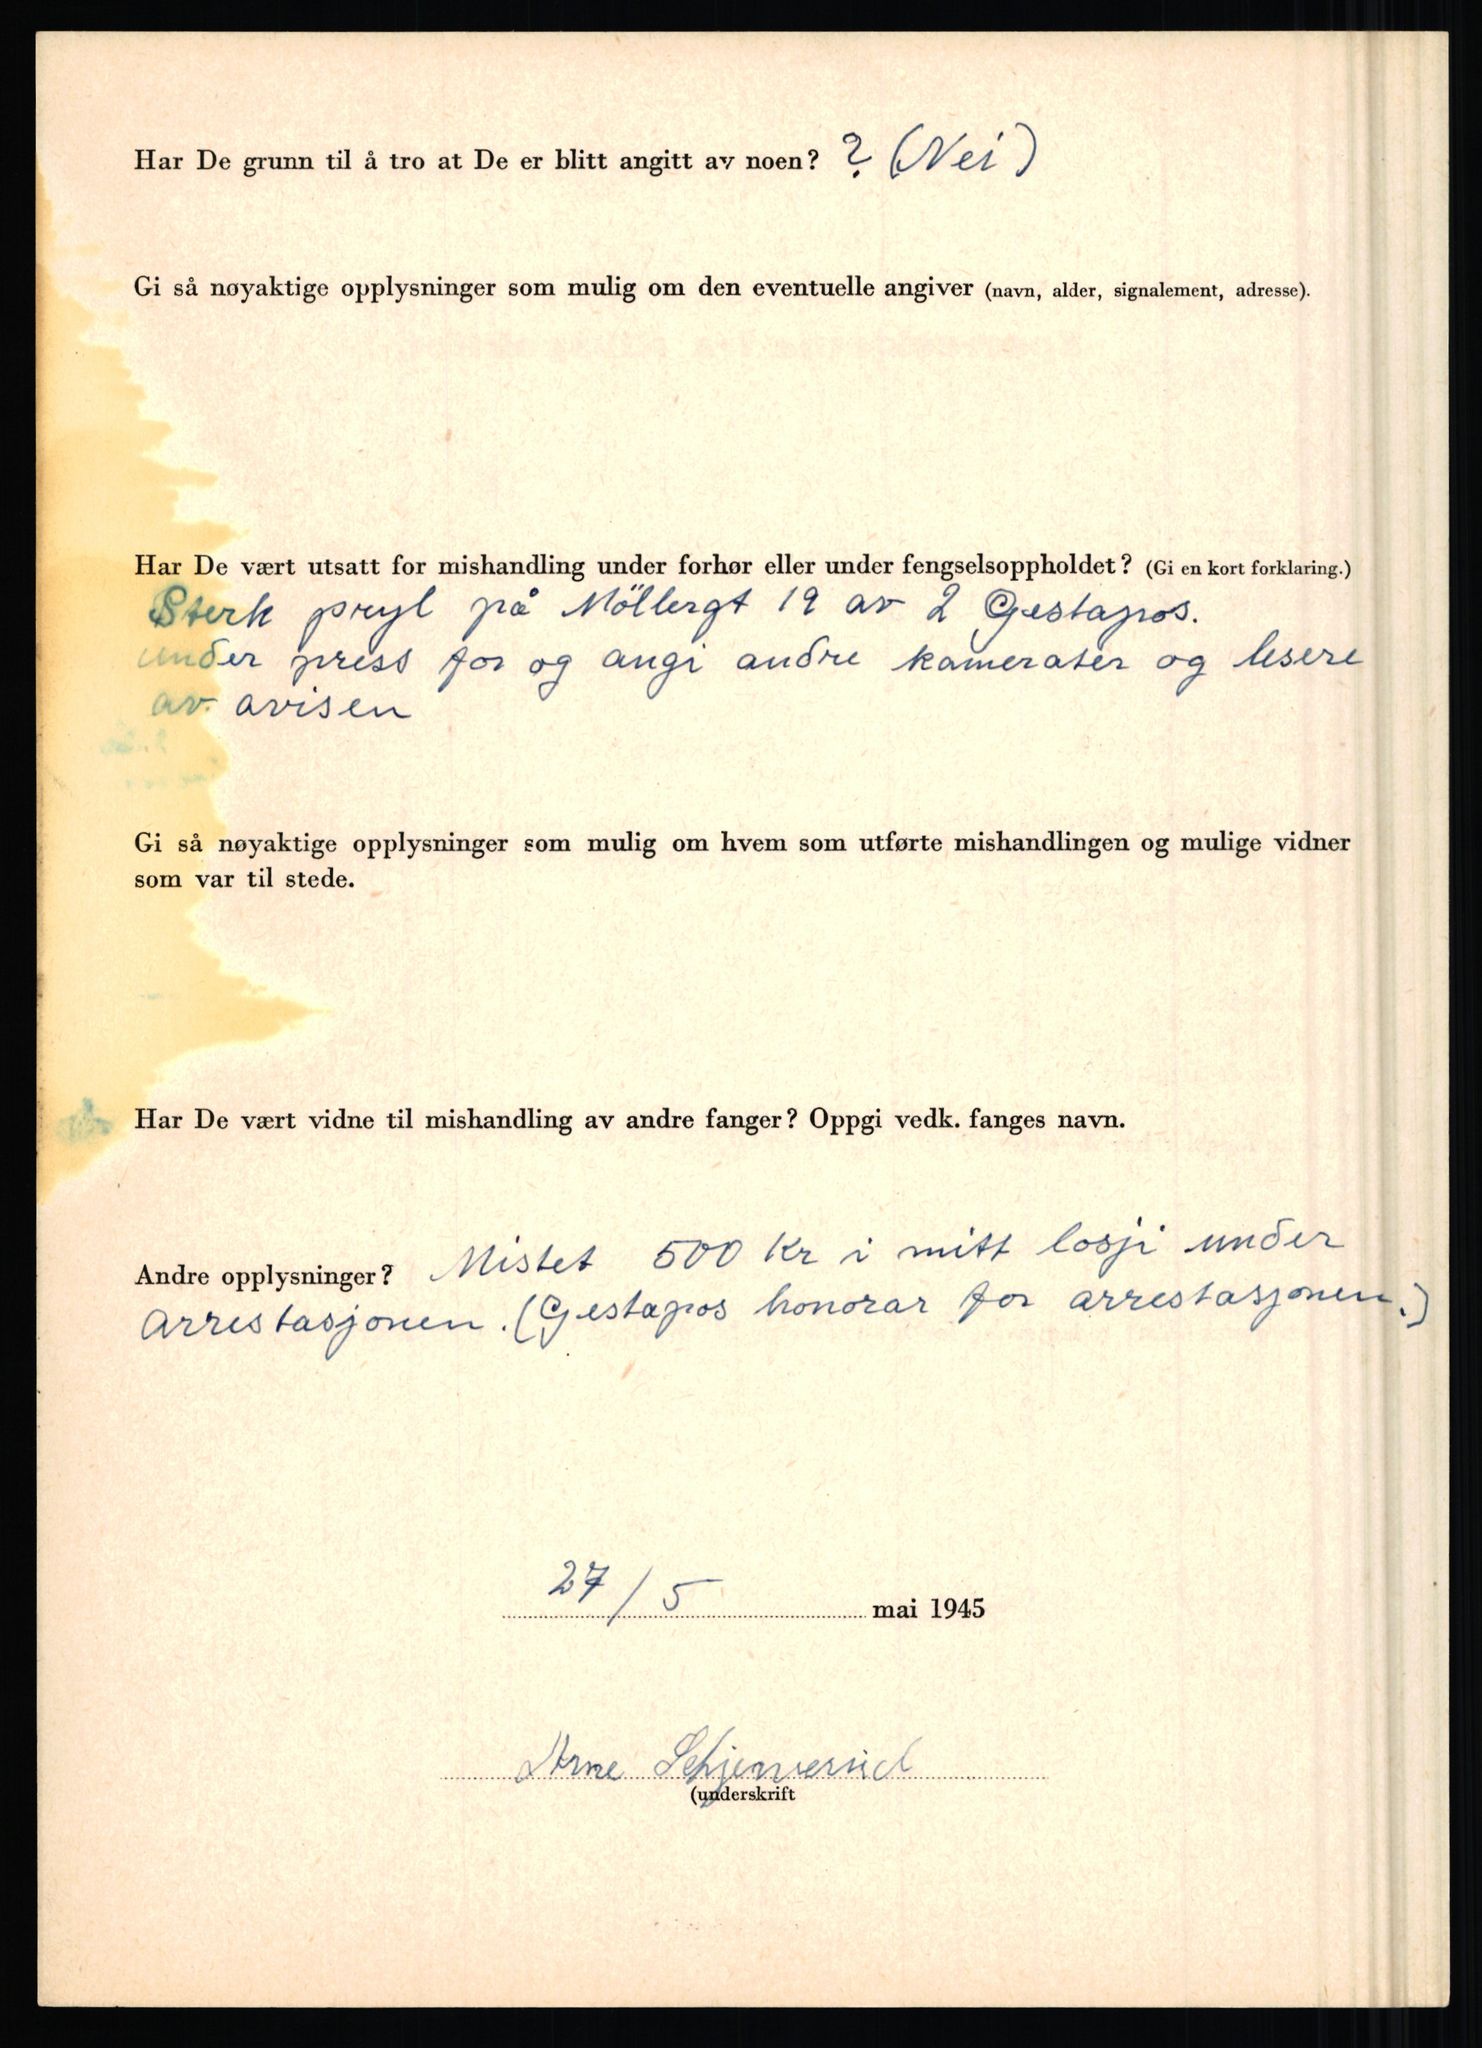 Har De grunn til å tro at De er blitt angitt av noen? ? (Nei)
Gi så nøyaktige opplysninger som mulig om den eventuelle angiver (navn, alder, signalement, adresse).
Har De vært utsatt for mishandling under forhør eller under fengselsoppholdet? (Gi en kort forklaring.)
Sterk pryl på Möllergt 19 av 2 Gestapos.
under press for og angi andre kamerater og lesere
av avisen
Gi så nøyaktige opplysninger som mulig om hvem som utførte mishandlingen og mulige vidner
som var til stede.
Har De vært vidne til mishandling av andre fanger? Oppgi vedk. fanges navn.
Andre opplysninger? Mistet 500 Kr i mitt losji under
arrestasjonen. (Gestapos honorar for arrestasjonen.)
27/5 mai 1945
Arne
(underskrift